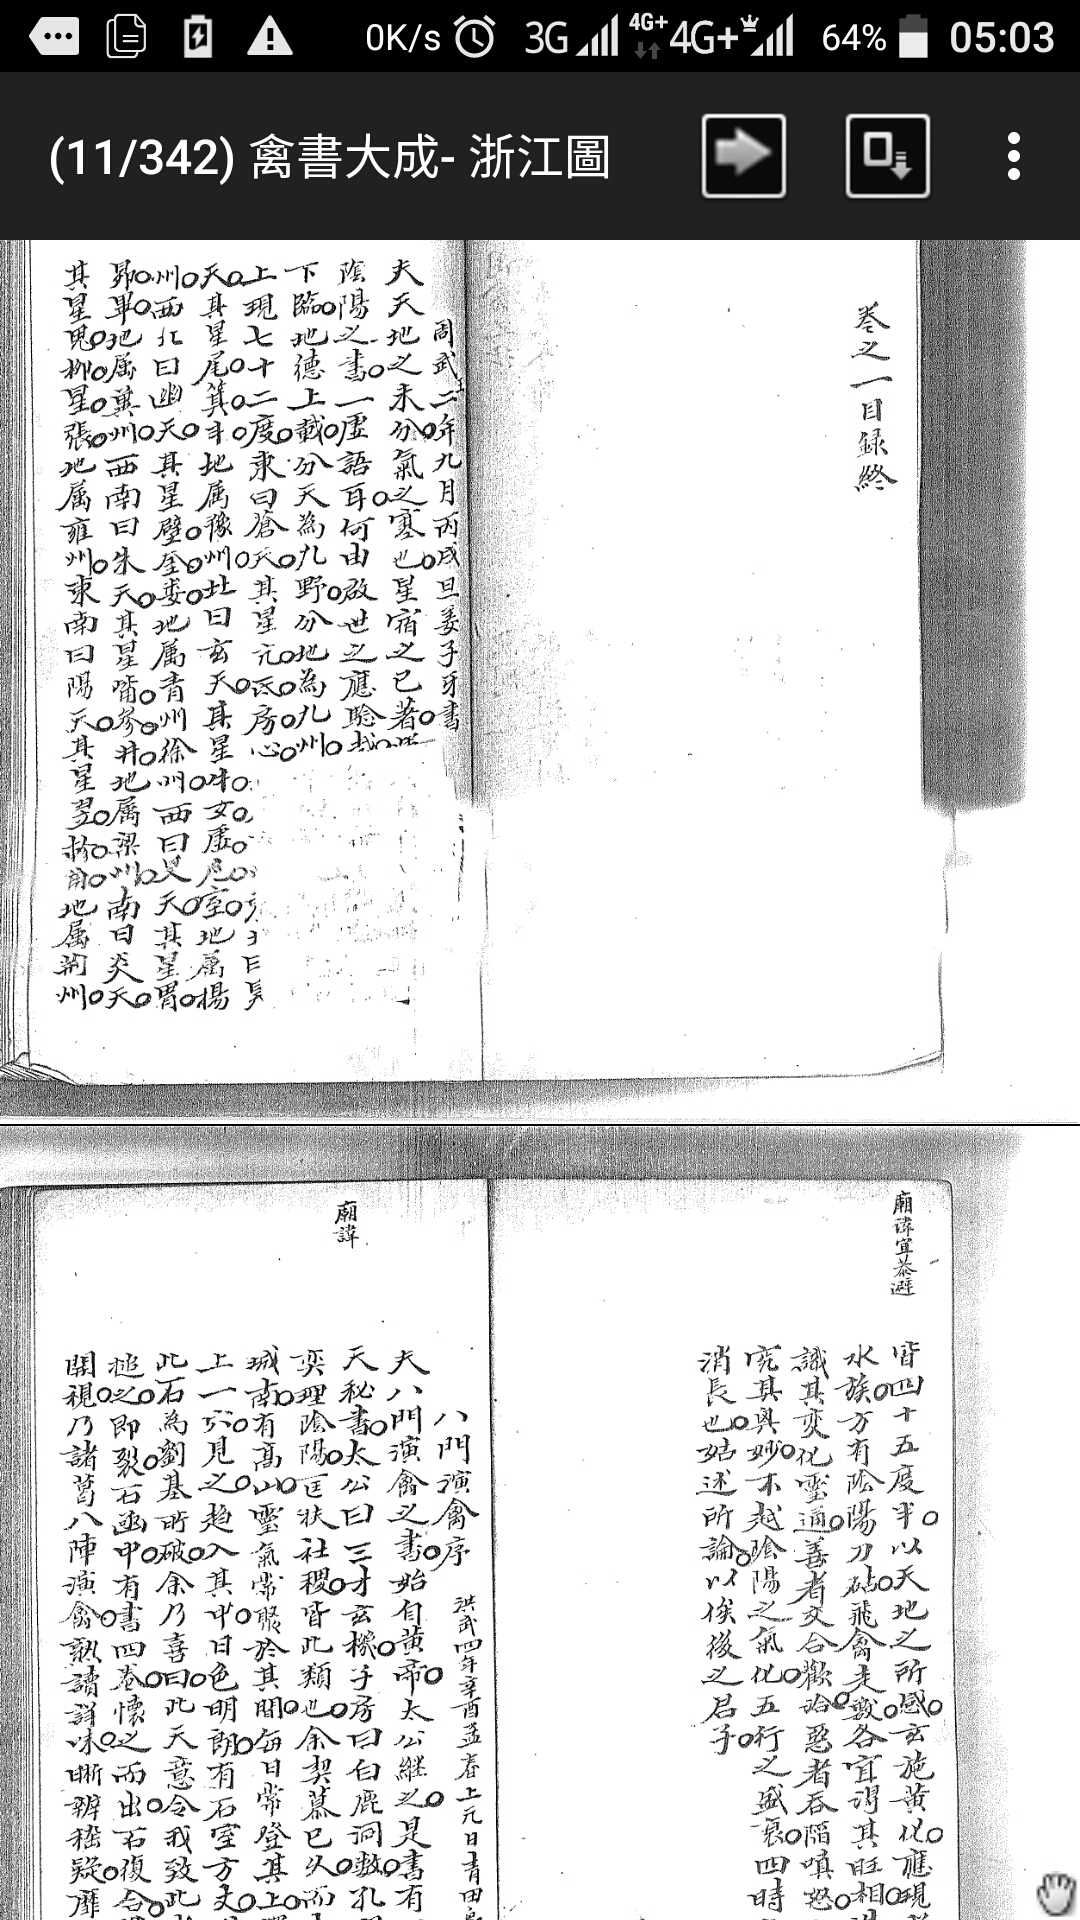 0K/s 3G 4G+ 4G+ 64% 05:03
(11/342) 禽書大成- 浙江圖
卷之一目録終
周武王二年九月丙戌旦姜子牙書
夫天地之未分氣之塞也星宿之已著
陰陽之書一虛語耳何由啟世之應騐
下臨地德上載分天為九野分地為九州
上現七十二度東曰蒼天其星亢氐房心
天其星尾箕斗地属豫州北曰玄天其星牛女虛危室地属揚
州西北曰幽天其星壁奎婁地属青州徐州西曰昊天其星胃
昴畢地属冀州西南曰朱天其星觜參井地属梁州南曰炎天
其星鬼柳星張地属雍州東南曰陽天其星翌軫角地属荊州
廟諱宜恭避
皆四十五度半以天地之所感玄施黄化應現
水族方有陰陽刀砧飛禽走獸各宜詳其旺相
識其变化靈通善者交合歡治惡者吞陷嗔怒
究其奥妙不越陰陽之氣化五行之盛衰四時
消長也姑述所論以俟後之君子
廟諱
八門演禽序
洪武四年辛酉孟春上元日青田
夫八門演禽之書始自黄帝太公継之是書有
天秘書太公曰三才玄機子房曰白鹿洞數孔
奕理陰陽匡扶社稷皆此類也余契慕已久而
城南有高山靈氣常聚於其間每日常登其上
上一穴見之趋入其中日色明朗有石室方丈
此石為劉基所破余乃喜曰此天意令我致此
搥之即裂石函中有書四卷懷之而出石復合
開視乃諸葛八陣演禽熟讀詳味晣辨嵇疑靡